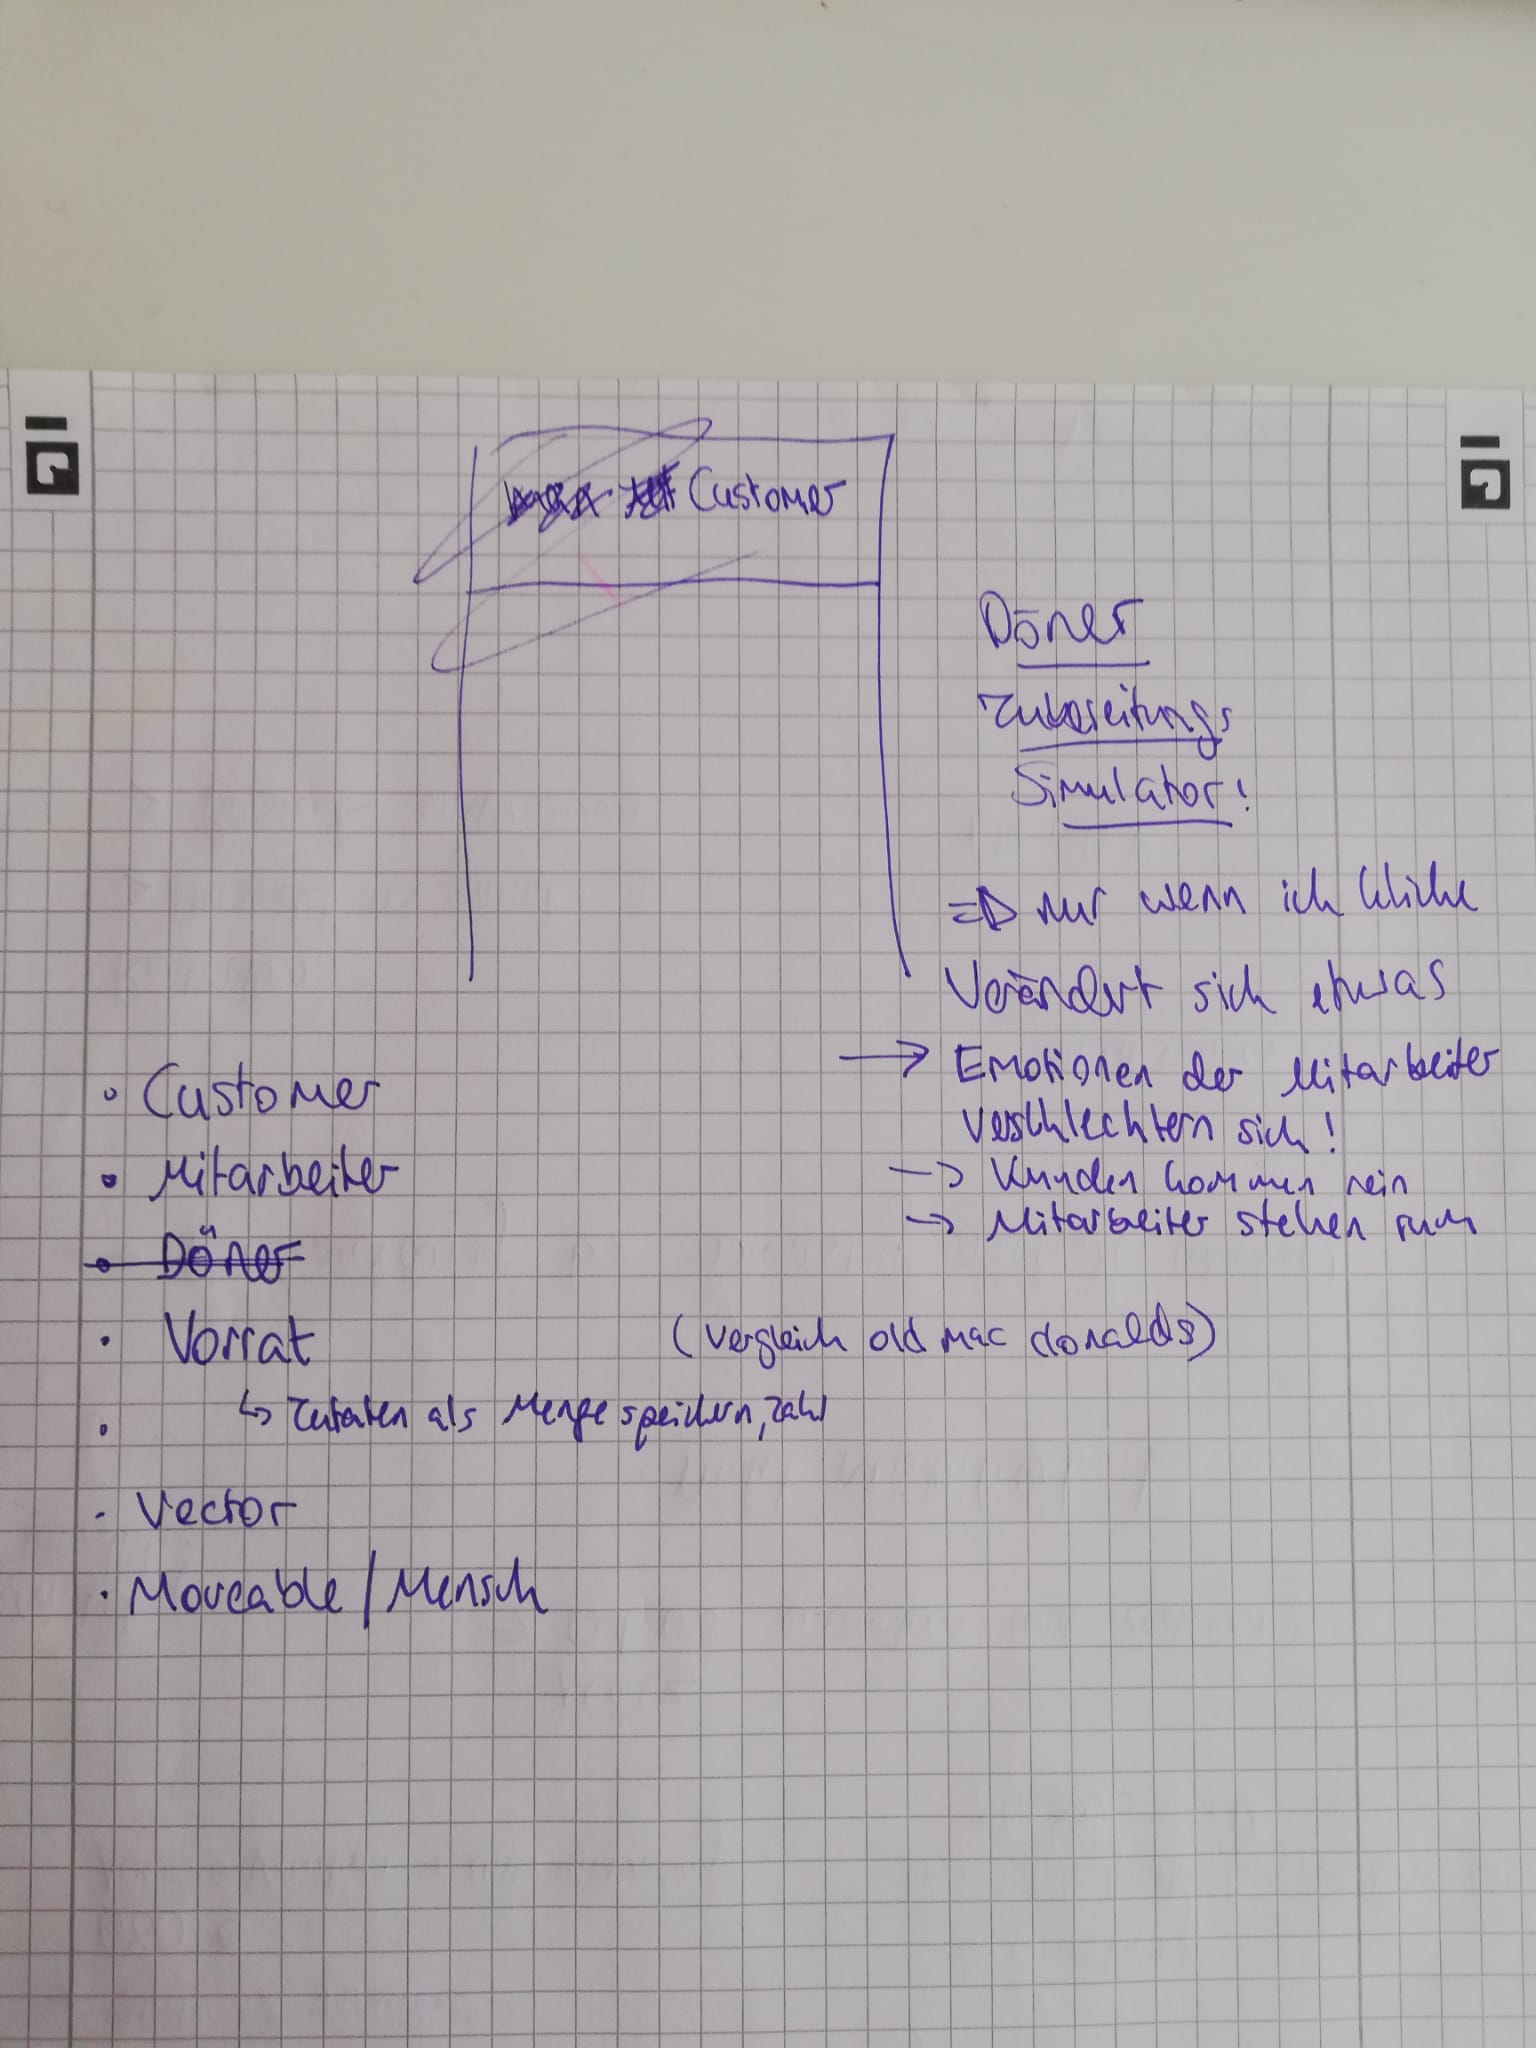 Customer
Döner
Zubereitungs
Simulator!
=> nur wenn ich klicke
Verändert sich etwas
→ Emotionen der Mitarbeiter
verschlechtern sich!
→ Kunden kommen rein
→ Mitarbeiter stehen rum
• Customer
• Mitarbeiter
• Döner
• Vorrat
(Vergleich old mac donalds)
↳ Zutaten als Menge speichern, Zahl
•
• Vector
• Moveable / Mensch